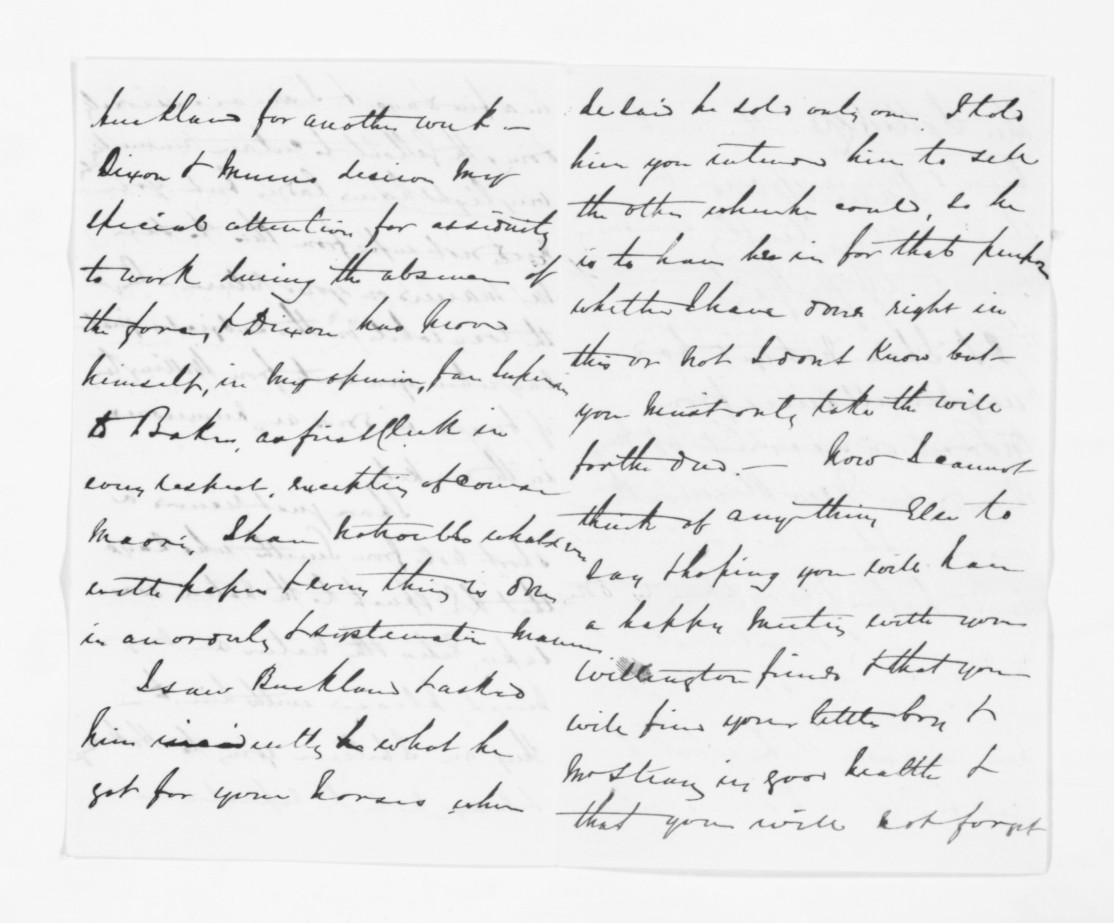 Auckland for another week —
Dixon & Munro deserve my
special attention for assiduity
to work during the absence of
the force, & Dixon has proved
himself, in my opinion, far superior
to Baker, as first Clerk in
every respect, excepting of course
Maori, I have no trouble whatever
with papers & every thing is done
in an orderly & systematic manner
I saw Buckland & asked
him incidentally what he
got for your horses, when
he said he sold only one. I told
him you intended him to sell
the other when he could, so he
is to have her in for that purpose
whether I have done right in
this or not I dont know but
you must only take the will
for the deed. — Now I cannot
think of anything Else to
say & hoping you will have
a happy meeting with your
Wellington friends & that you
will find your little boy &
Mrs Strang in good health &
that you will not forget